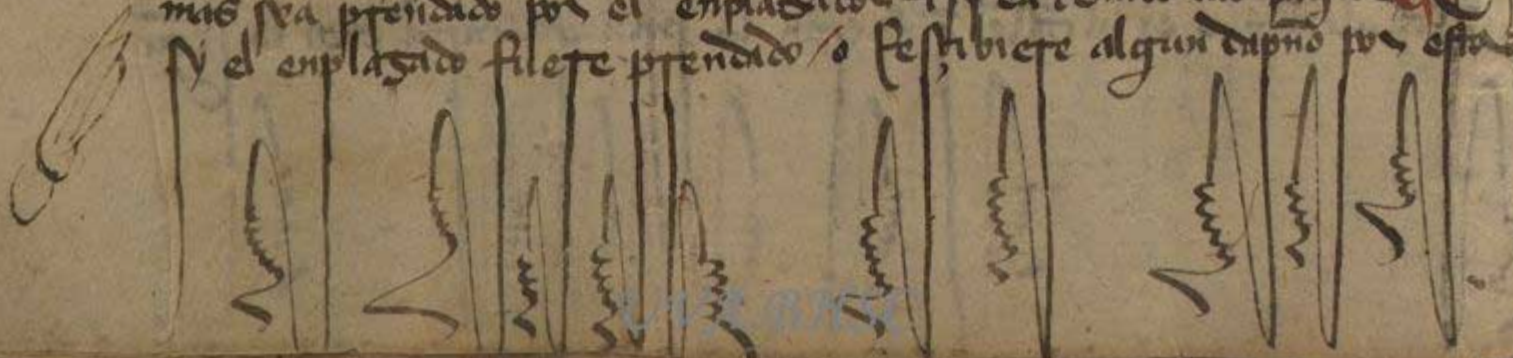 mas sea prendado por el enplagado
sy el enplagado fuese prendado / o Resçibiese algun dapño por esto
UVA BHSC